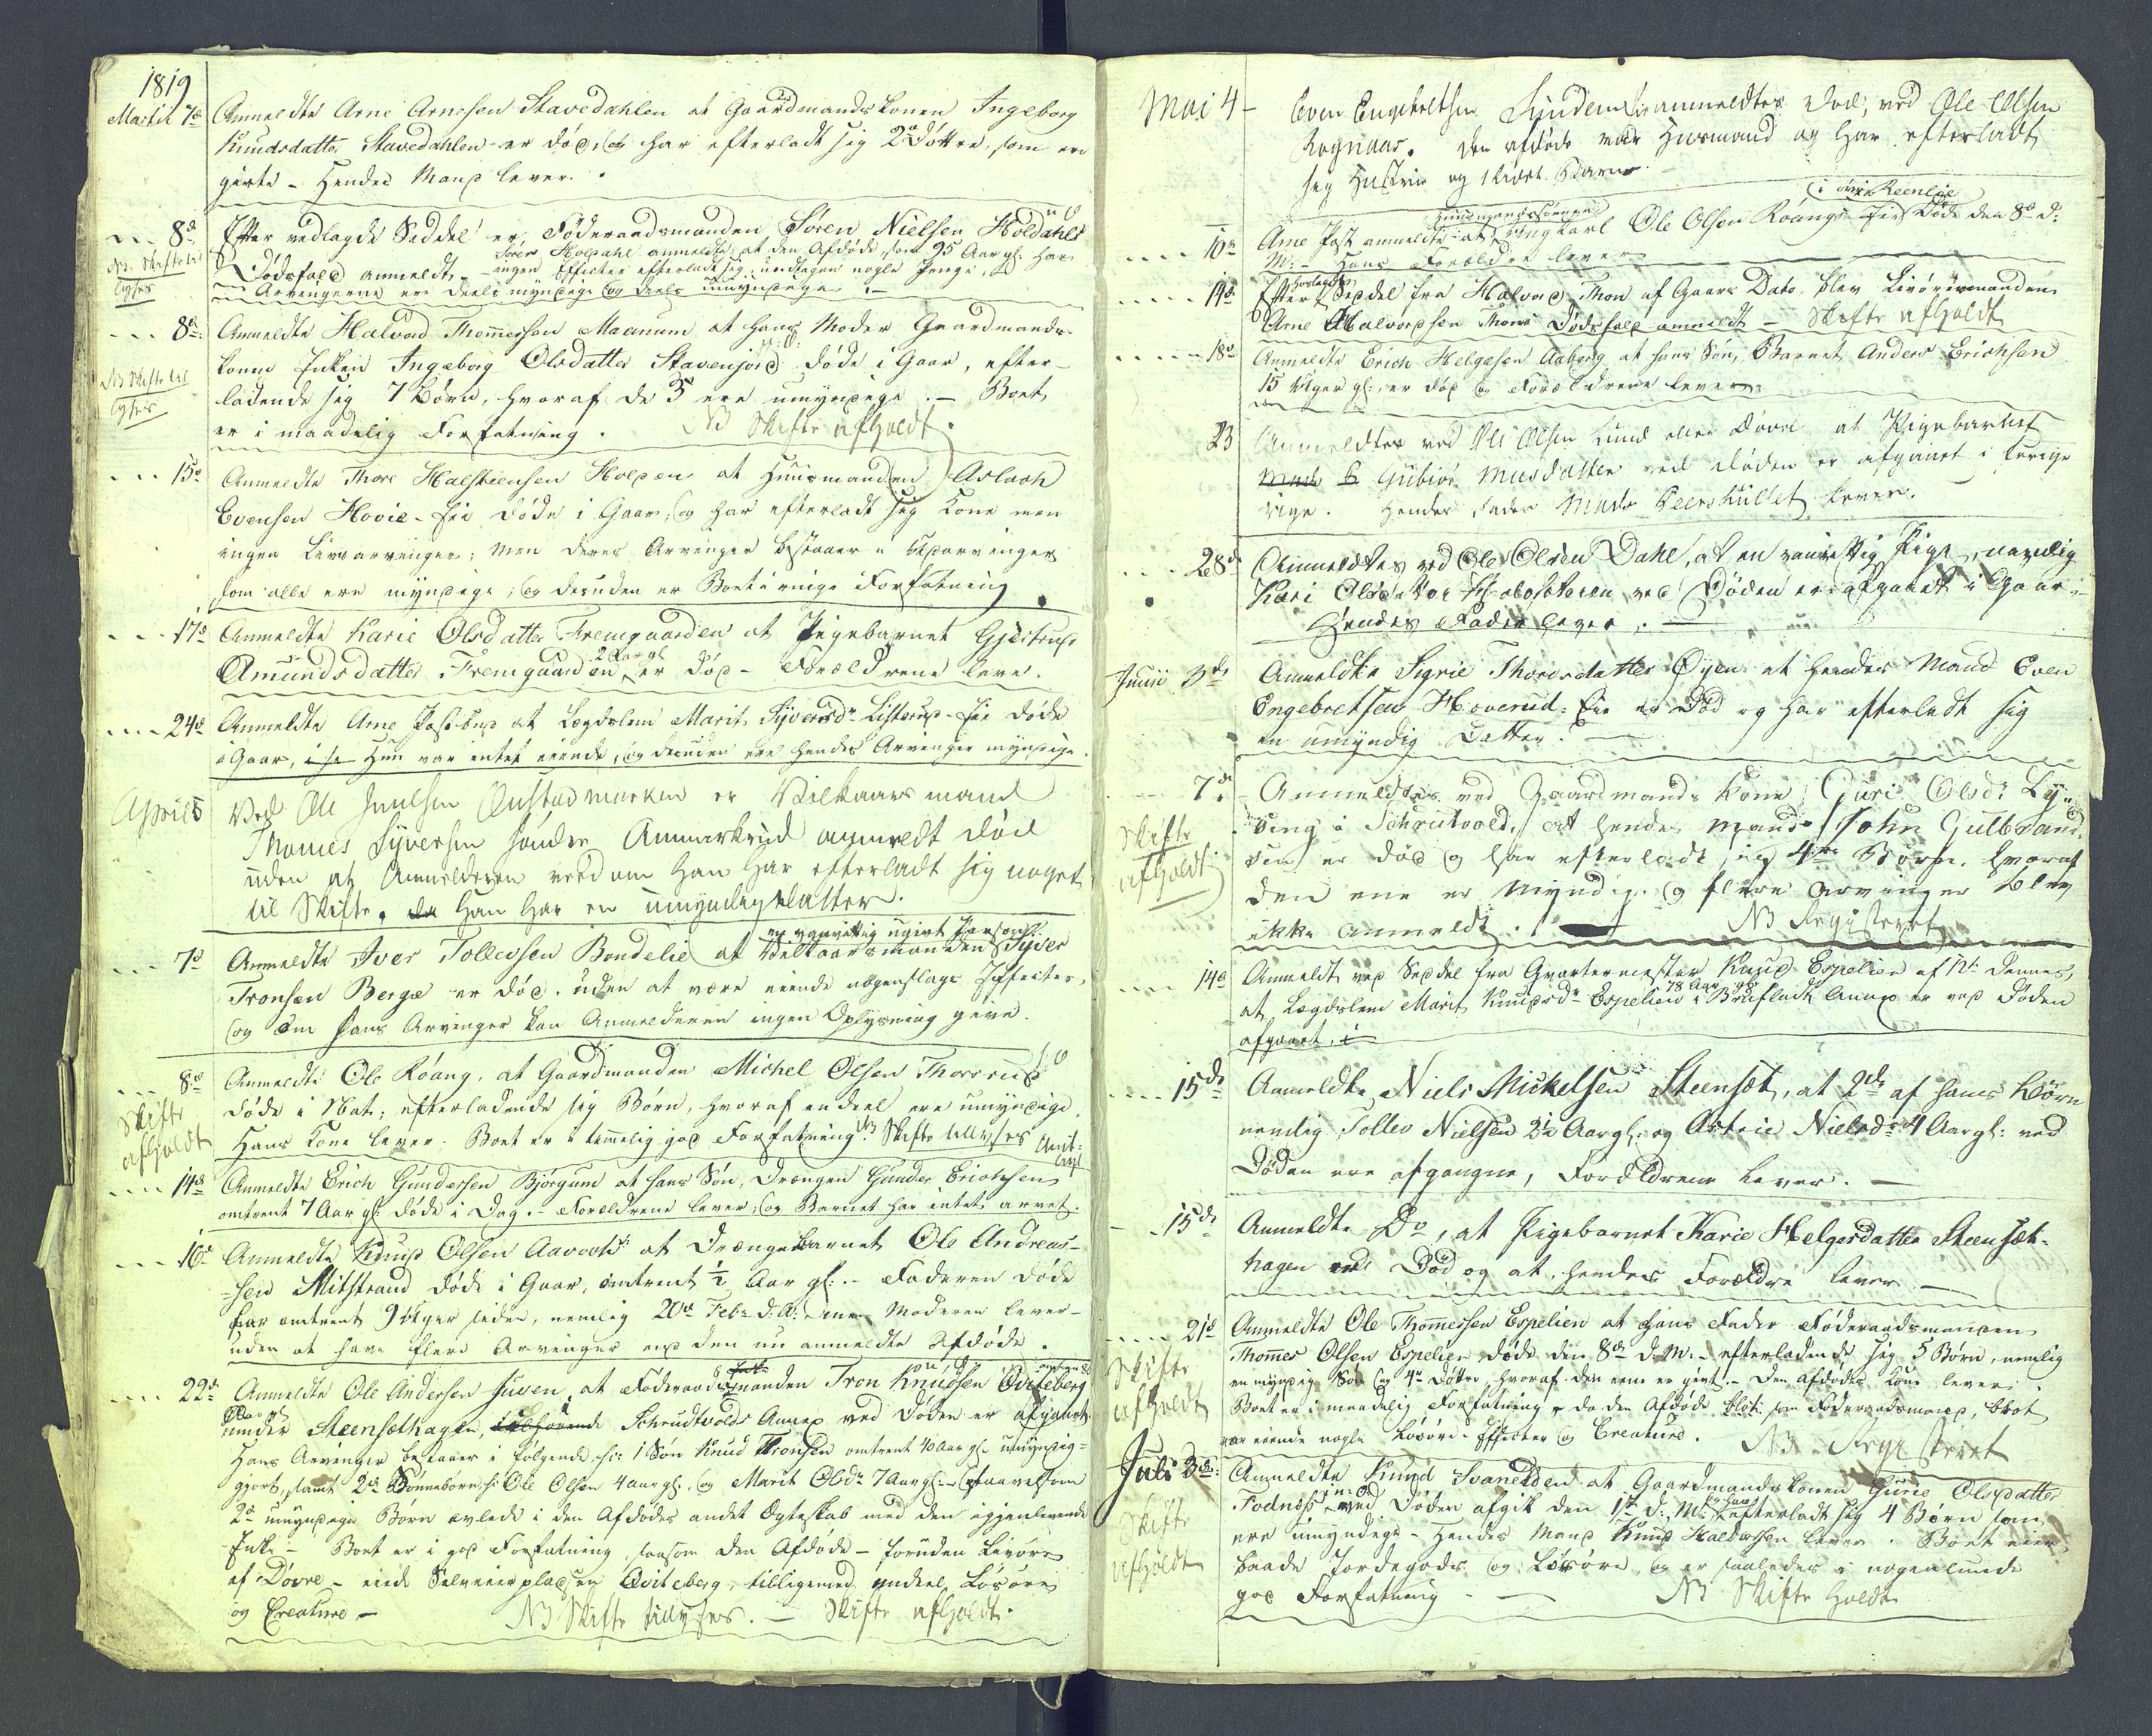 1819
Martii 7de Anmeldte Arne Arnesen Stavedahlen at Gaardmandskonen Ingeborg
Knudsdatter Stavedahlen er død, og har efterladt sig 2de Døttre, som ere
givte - Hendes Mand lever.
8de Efter vedlagde Seddel er Föderaadsmanden Sören Nielsen Holdahls
NB. Skifte tillyses
Dödsfald anmeldt. - Sören Holdahl anmeldte at den Afdöde, som 95 Aar gl: har
ingen Effecter efterladt sig, undtagen nogle Penge,
Arvingerne ere deels myndige og deels umyndige. -
8de Anmeldte Halvord Thommessen Maanum at hans Moder Gaardmands-
konen Enken Ingeborg Olsdatter Stavenjord döde i Gaar, efter-
NB Skifte til
lyses
ladende sig 7 Börn, hvoraf de 3 ere umyndige. - Boet
er i maadelig Forfatning. NB Skifte afholdt.
15de Anmeldte Thore Halsteensen Holden at Huusmanden Aslach
Evensen Hovie - Eie döde i Gaar, og har efterladt sig Kone men
ingen Livsarvinger; men deres Arvinger bestaaer i Udarvinger
som alle ere myndige, og desuden er Boet i ringe Forfatning.
17de Anmeldte Karie Olsdatter Fremgaarden at Pigebarnet Gjertrud
Amundsdatter Fremgaarden 2 Aar gl er död - Forældrene leve.
24de Anmeldte Arne at Lægdslem Marit Syversdr Listerud - Eie döde
i Gaar, Hun var intet eiende, og desuden ere hendes Arvinger myndige.
April 5 Ved Ole Juulsen Önstadmarken er Vilkaarsmand
Thomes Syversen söndre Ammerkrud anmeldt död
uden at Anmelderen veed om han har efterladt sig noget
til Skifte, da han har en umyndig Datter.
7de Anmeldte Iver Tollevsen Bondelie at en vanvittig ugivt Person Vilkaarsmanden Syver
Tronsen Berge er död, uden at være eiende nogenslags Effecter,
og om hans Arvinger kan Anmelderen ingen Oplysning give.
8de Anmeldte Ole Röang, at Gaardmanden Michel Olsen Thorsrud
döde i Nat, efterladende sig Börn, hvoraf en deel ere umyndige.
Skifte
afholdt
Hans Kone lever. Boet er i temmelig god Forfatning. NB Skifte tillyses
14de Anmeldte Erich Gundersen Björgum at hans Sön, Drængen Gunder Erichsen
omtrent 7 Aar gl: döde i Dag. - Forældrene lever, og Barnet har intet arvet.
16de Anmeldte Knud Olsen Aavooht at Drængebarnet Ole Andreas-
sen Mitstrand döde i Gaar, omtrent 1/2 Aar gl: - Faderen döde
for omtrent 9 Uger siden, nemlig 20de Febr: d: A: - men Moderen lever -
uden at have flere Arvinger end den nu anmeldte Afdöde.
22de Anmeldte Ole Andersen Juven at Föderaadsmanden Tron Knudsen Qviteberg
under Steensethagen, Schrudtvolds Annex ved Döden er afgaaet.
Hans Arvinger bestaaer i fölgende: 1 Sön Knud Tronsen omtrent 40 Aar gl: umyndig-
gjort, samt 2de Sönnebörn: Ole Olsen 4 Aar gl:, og Marit Olsdr 7 Aar gl: - saavelsom
2de umyndige Börn avlede i den Afdödes andet Ægteskab med den igjenlevende
Enke - Boet er i god Forfatning, saasom den Afdöde - foruden Livöre
af Dövre - eiede Selveierpladsen Qviteberg, tilligemed endeel Lösöre
og Creature - NB Skifte tillyses. - Skifte afholdt.
Mai 4 - Even Engebretsen anmeldtes död, ved Ole Olsen
Rognaas. Den afdöde var Huusmand og har efterladt
sig Hustrue og 1 Barn.
10de Arne Post anmeldte at Huusmandssönnen Ungkarl Ole Olsen Röangs Eie i övre Reenlie döde den 8de d:
M: - Hans Forældre lever
14de Efter forlagt Seddel fra Halvord Thon af Gaars Dato, blev Livöremanden
Arne Halvordsen Thons Dödsfald anmeldt - Skifte afholdt
18de Anmeldte Erich Helgesen Aaberg at hans Sön, Barnet Anders Erichsen
15 Uger gl: er död og Forældrene lever.
23 Anmeldtes ved Ole Olsen Lund eller Dövre at Pigebarnet
Gubiör Madsdatter ved Döden er afgaaet i forrige
Uge. Hendes Fader Mads Peershullet lever.
28de Anmeldtes ved Ole Olsen Dahl, at en vanvittig Pige, navnlig
Kari Olsdatter ved Döden er afgaaet i Gaar.
Hendes Fader lever. -
Junii 3de Anmeldte Sigrie Thoresdatter Öyen at hendes Mand Even
Engebretsen Hoverud - Eie er Död og har efterladt sig
en umyndig Datter. -
7de Anmeldtes ved Gaardmands Kone Guri Olsdr
i Schrutvold, at hendes Mand John Gulbrand-
Skifte
afholdt
sen er död og har efterladt sig 4re Börn, hvoraf
den ene er Myndig. og flere Arvinger blev
ikke anmeldt. NB Registeret
14de Anmeldt ved Seddel fra Qvarteermester Knud Espelien af 11te dennes,
at Lægdslem Marit Knudsdr Espelien 78 Aar gl i Brufladt Annex er ved Döden
afgaaet.
15de Anmeldte Niels Mickelsen Steensæt, at 2de af hans Börn
nemlig Tollev Nielsen 2 1/2 Aar gl: og Astrie Nielsdr 4 Aar gl: ved
Döden ere afgangne, Forældrene lever. -
15de Anmeldte Do, at Pigebarnet Karie Helgesdatter Steensæt-
hagen er Död og at hendes Forældre lever -
21de Anmeldte Ole Thommessen Espelien at hans Fader Föderaadsmanden
Thommes Olsen Espelien döde den 8de d: M: - efterladende sig 5 Börn, nemlig
Skifte
afholdt
en myndig Sön og 4re Döttre, hvoraf den ene er givt. - Den Afdödes Kone lever.
Boet er i maadelig Forfatning, da den Afdöde som Föderaadsmand, blot
var eiende nogle Lösöre-Effecter og Creature. NB. Registeret
Juli 3de: Anmeldte Knud Svanedden at Gaardmandskonen Gurie Olsdatter
Fodnæs ved Döden afgik den 1ste d: M: og har efterladt sig 4 Börn som
Skifte
afholdt
ere umyndige - Hendes Mand Knud Halvorsen lever. Boet eier
baade Jordegods og Lösöre, og er saaledes i nogenlunde
god Forfatning - NB Skifte holdt